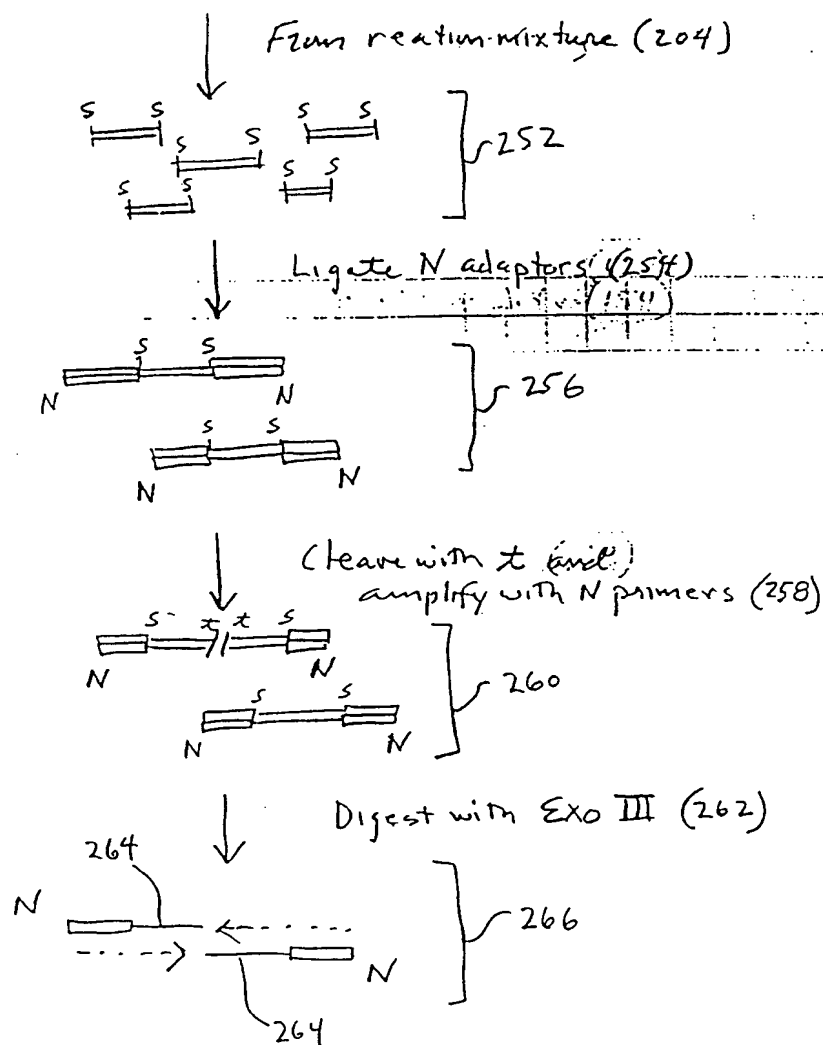 From reation mixture (204)
S S S S
S S
S S S
252
Ligate N adaptors (254)
S S
N N
256
S S
N N
Cleave with t and
amplify with N primers (258)
S t t S
N N
S S
260
N N
Digest with Exo III (262)
264
N
266
N
264